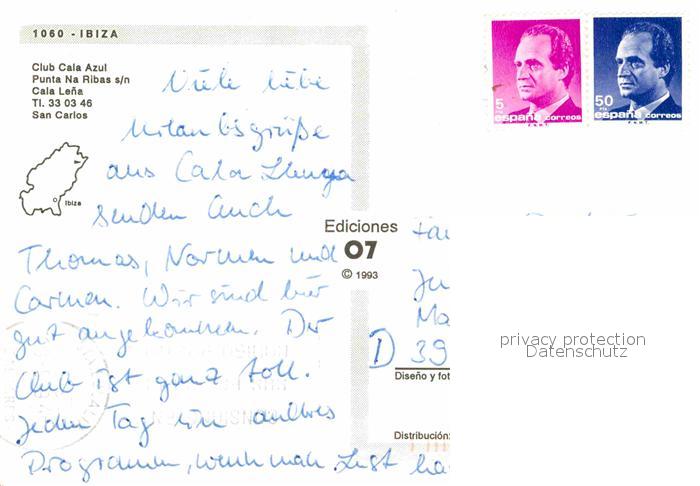 1060 - IBIZA
Club Cala Azul
Punta Na Ribas s/n
Cala Leña
Tl. 33 03 46
San Carlos
Ibiza
5
PTA
españa correos
F.N.M.T.
50
PTA
españa correos
F.N.M.T.
Viele liebe
Urlaubsgrüße
aus Cala Llenya
senden Euch
Thomas, Normen und
Carmen. Wir sind hier
gut angekommen. Der
Club ist ganz toll.
Jeden Tag ein anderes
Programm, wenn man Lust ha
Ediciones
07
© 1993
Fa
Ju
Ma
D 39
Diseño y fot
Distribución:
privacy protection
Datenschutz